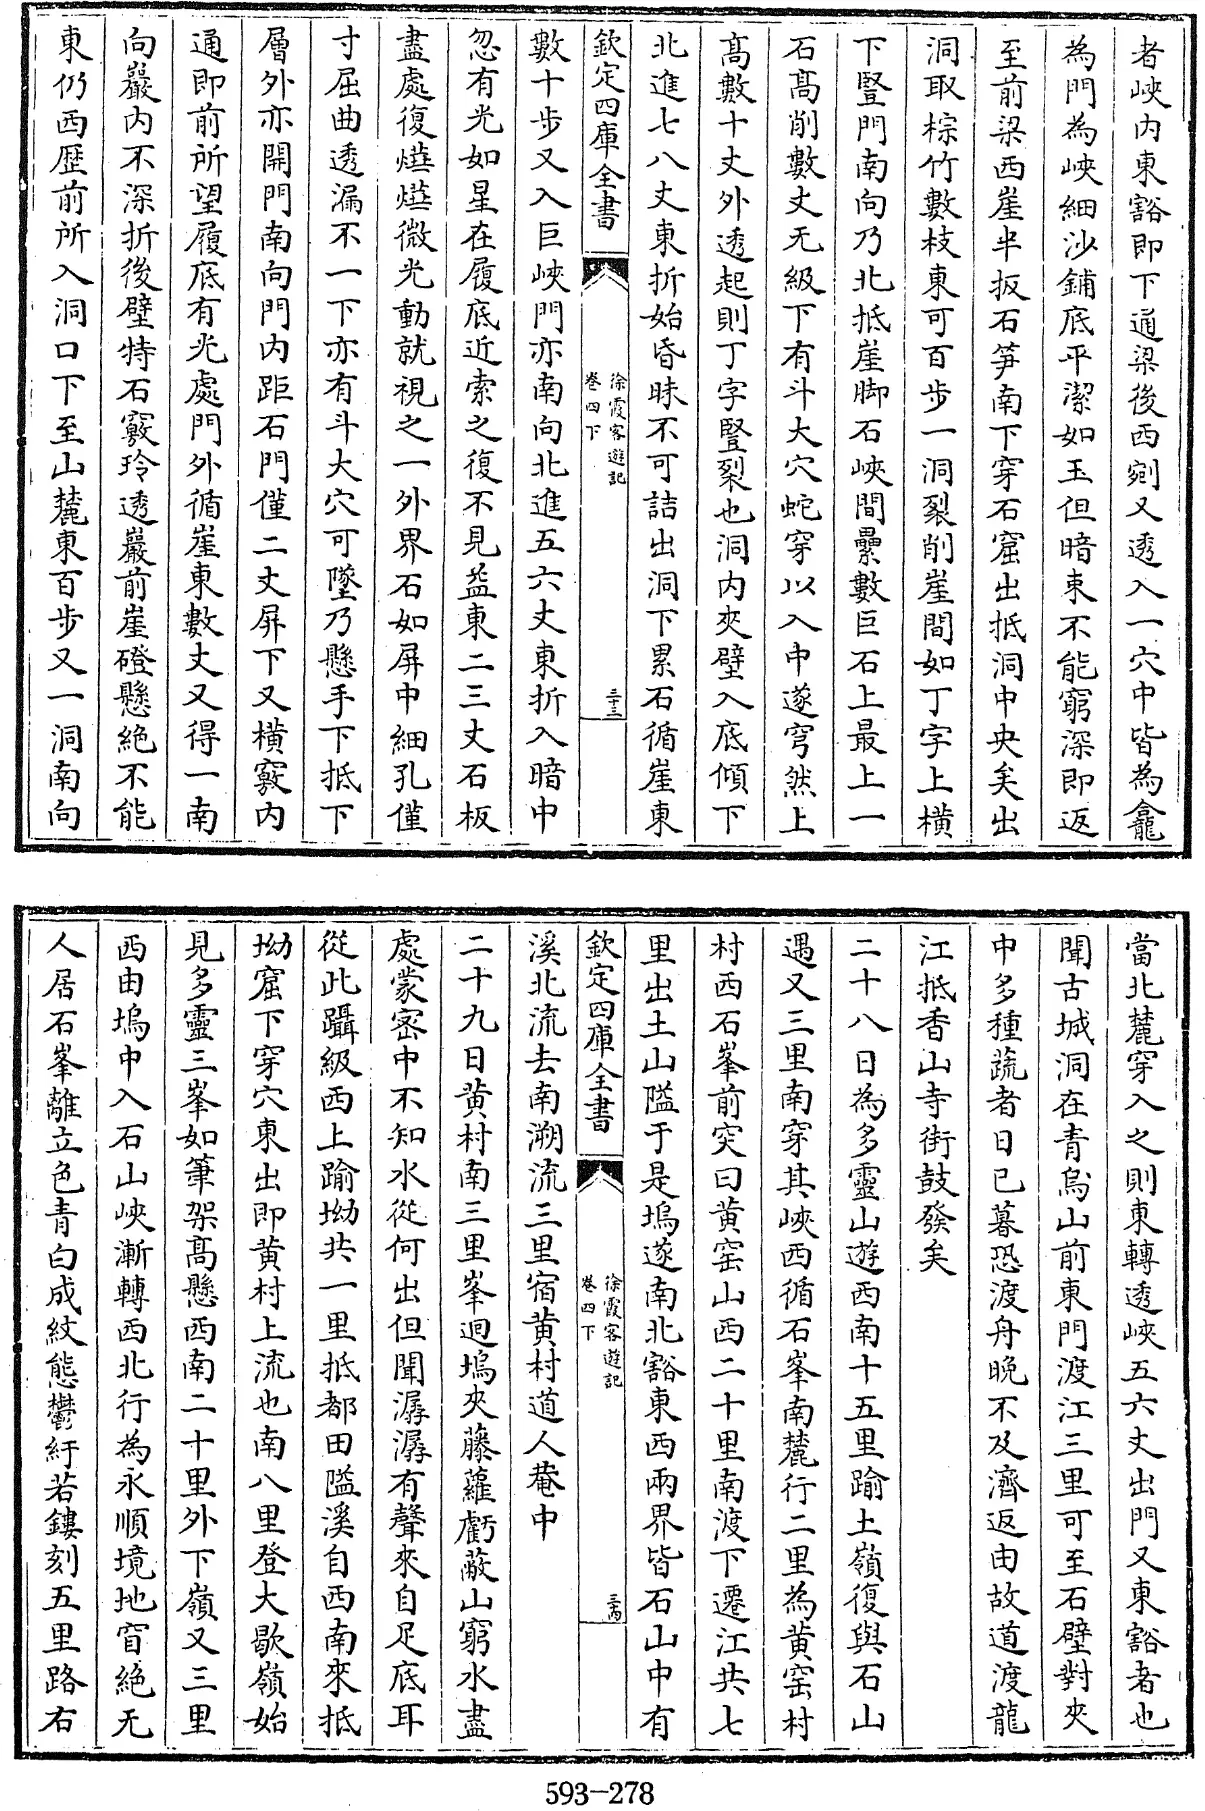 者峽内東豁即下通梁後西剜又透入一穴中皆為龕
為門為峽細沙鋪底平潔如玉但暗東不能窮深即返
至前梁西崖半扳石笋南下穿石窟出抵洞中央矣出
洞取棕竹數枝東可百步一洞裂削崖間如丁字上橫
下豎門南向乃北抵崖脚石峽間壘數巨石上最上一
石髙削數丈无級下有斗大穴蛇穿以入中遂穹然上
髙數十丈外透起則丁字豎裂也洞内夾壁入底傾下
北進七八丈東折始昏昧不可詰出洞下累石循崖東
欽定四庫全書
徐霞客遊記
卷四下
三十三
數十步又入巨峽門亦南向北進五六丈東折入暗中
忽有光如星在履底近索之復不見葢東二三丈石板
盡處復熒熒微光動就視之一外界石如屏中細孔僅
寸屈曲透漏不一下亦有斗大穴可墜乃懸手下抵下
層外亦開門南向門内距石門僅二丈屏下又橫竅内
通即前所望履底有光處門外循崖東數丈又得一南
向巖内不深折後壁特石竅玲透巖前崖磴懸絶不能
東仍西歴前所入洞口下至山麓東百步又一洞南向
當北麓穿入之則東轉透峽五六丈出門又東豁者也
聞古城洞在青鳥山前東門渡江三里可至石壁對夾
中多種蔬者日已暮恐渡舟晩不及濟返由故道渡龍
江抵香山寺街鼓發矣
二十八日為多靈山遊西南十五里踰土嶺復與石山
遇又三里南穿其峽西循石峯南麓行二里為黄窑村
村西石峯前突曰黄窑山西二十里南渡下遷江共七
里出土山隘于是塢遂南北豁東西兩界皆石山中有
欽定四庫全書
徐霞客遊記
卷四下
三十四
溪北流去南溯流三里宿黄村道人菴中
二十九日黄村南三里峯迴塢夾藤蘿虧蔽山窮水盡
處蒙密中不知水從何出但聞潺潺有聲來自足底耳
從此躡級西上踰坳共一里抵都田隘溪自西南來抵
坳窟下穿穴東出即黄村上流也南八里登大歇嶺始
見多靈三峯如筆架髙懸西南二十里外下嶺又三里
西由塢中入石山峽漸轉西北行為永順境地窅絶无
人居石峯離立色青白成紋態鬱紆若鏤刻五里路右
593-278